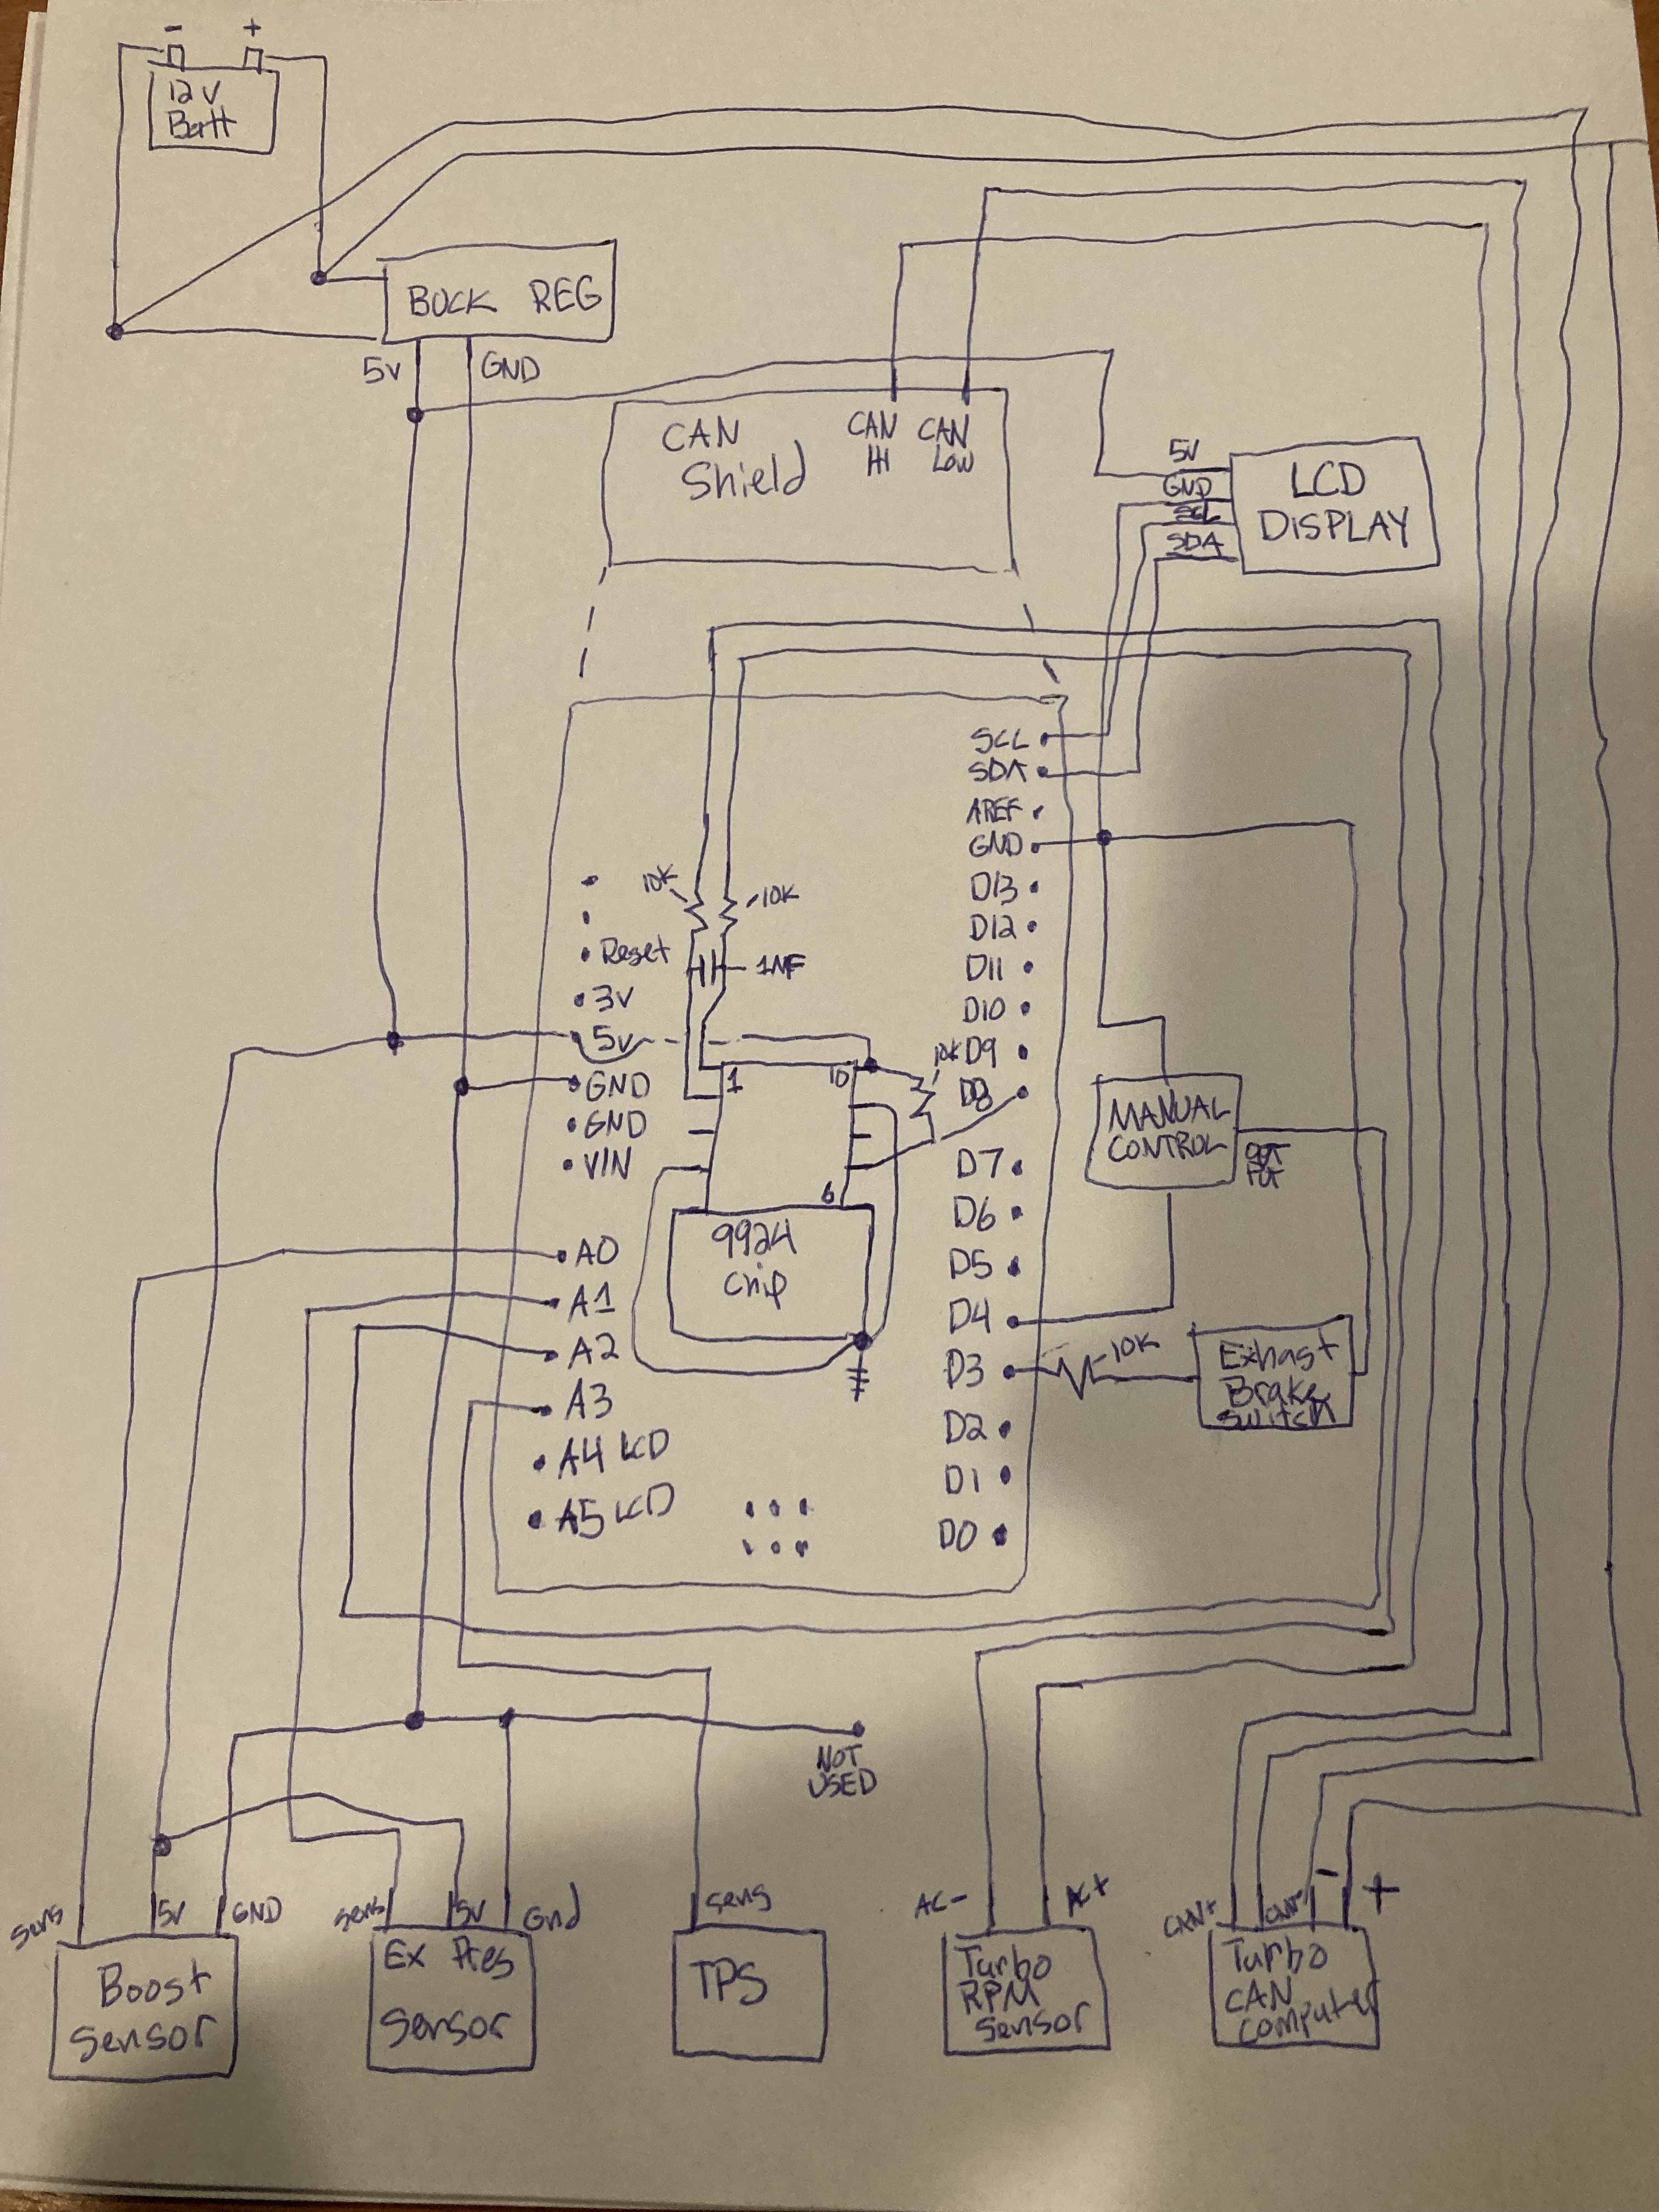 - +
12 V
Batt
BUCK REG
5V GND
CAN
Shield
CAN
HI
CAN
LOW
5V
GND
SCL
SDA
LCD
DISPLAY
SCL
SDA
AREF
GND
D13
D12
D11
D10
D9
D8
D7
D6
D5
D4
D3
D2
D1
D0
10K
10K
1NF
Reset
3V
5V
GND
GND
VIN
A0
A1
A2
A3
A4 LCD
A5 LCD
1
10
6
10K
9924
Chip
MANUAL
CONTROL
OUT
PUT
10K
Exhast
Brake
Switch
NOT
USED
Sens
5V
GND
Boost
Sensor
Sens
5V
Gnd
Ex Pres
Sensor
Sens
TPS
AC-
AC+
Turbo
RPM
Sensor
CAN+
CAN-
-
+
Turbo
CAN
Computer